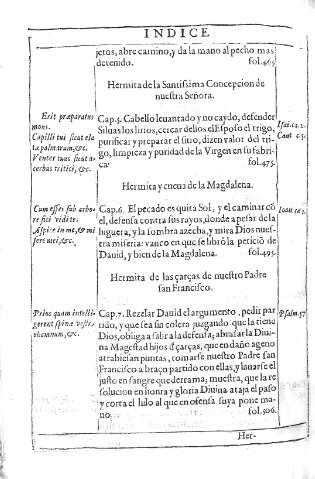 INDICE
jetos, abre camino, y da la mano al pecho mas
detenido. fol.465.
Hermita de la Santissima Concepcion de
nuestra Señora.
Erit præparatus
mons.
Capilli tui sicut ela
tæ palmarum, &c.
Venter tuus sicut a-
cerbus tritici, &c.
Cap.5. Cabello leuantado y no caydo, defender
Silua los lirios, cercar dellos el Esposo el trigo,
purificar y preparar el sitio, dizen valor del tri-
go, limpieza y puridad de la Virgen en su fabri-
ca. fol.475.
Isai. c. 2.
Cant. c.
Hermita y cueua de la Magdalena.
Cum esses sub arbo-
re fici vidi te.
Aspice in me, & mi
serere mei, &c.
Cap.6. El pecado es quita Sol, y el caminar cō
el, defensa contra sus rayos, donde a pesar de la
higuera, y la sombra azecha, y mira Dios nues-
tra miseria: vanco en que se libró la peticiō de
Dauid, y bien de la Magdalena. fol.495.
Ioan. c.
Hermita de las çarças de nuestro Padre
san Francisco.
Prius quam intelli-
gerent spinæ vestræ
rhamnum, &c.
Cap.7. Rezelar Dauid el argumento, pedir par
tido, y que sea sin colera juzgando que la tiene
Dios, obliga a salir a la defensa; abrasar la Diui-
na Magestad hijos d̃ çarças, que en daño ageno
atrabiessan puntas, tomarse nuestro Padre san
Francisco a braço partido con ellas, y lauarse el
justo en sangre que derrama; muestra, que la re
solucion en honra y gloria Diuina ataja el passo
y corta el hilo al que en ofensa suya pone ma-
no. fol.506.
Psalm. 57
Her-